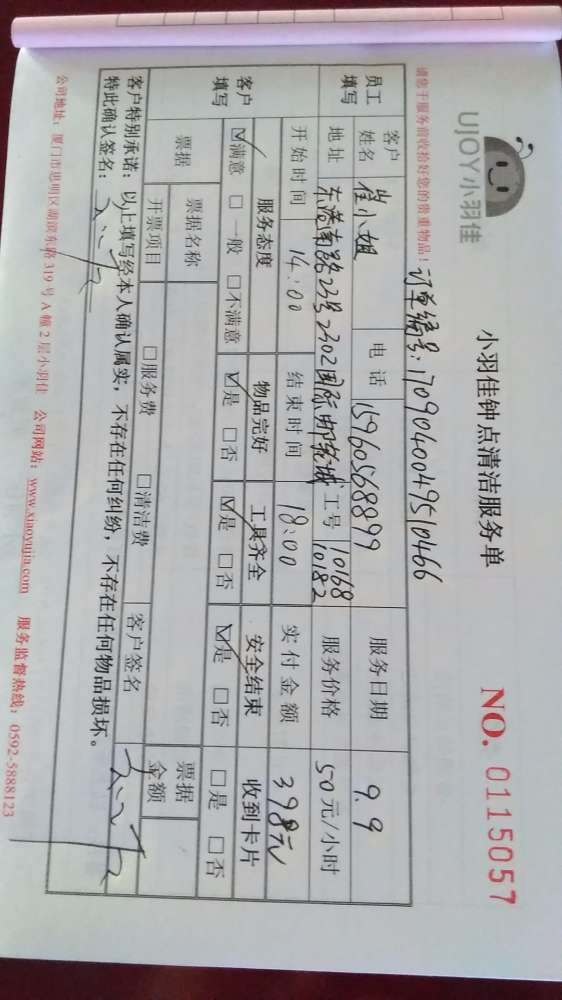 UJOY小羽佳
小羽佳钟点清洁服务单
NO. 0115057
请您于服务前收拾好您的贵重物品！
订单编号:1709040049510466
员工填写
客户姓名 崔小姐 电话 15960568899 服务日期 9.9
地址 东港南路23号2302国际邮轮城 工号 10168 10182 服务价格 50元/小时
开始时间 14:00 结束时间 18:00 实付金额 398元
客户填写
服务态度 物品完好 工具齐全 安全结束 收到卡片
☑满意 □一般 □不满意 ☑是 □否 ☑是 □否 ☑是 □否 □是 □否
票据 票据名称 票据金额
开票项目 □服务费 □清洁费 客户签名
客户特别承诺：以上填写经本人确认属实，不存在任何纠纷，不存在任何物品损坏。
特此确认签名：
公司地址：厦门市思明区湖滨东路319号A幢2层小羽佳 公司网站：www.xiaoyujia.com 服务监督热线：0592-5888123